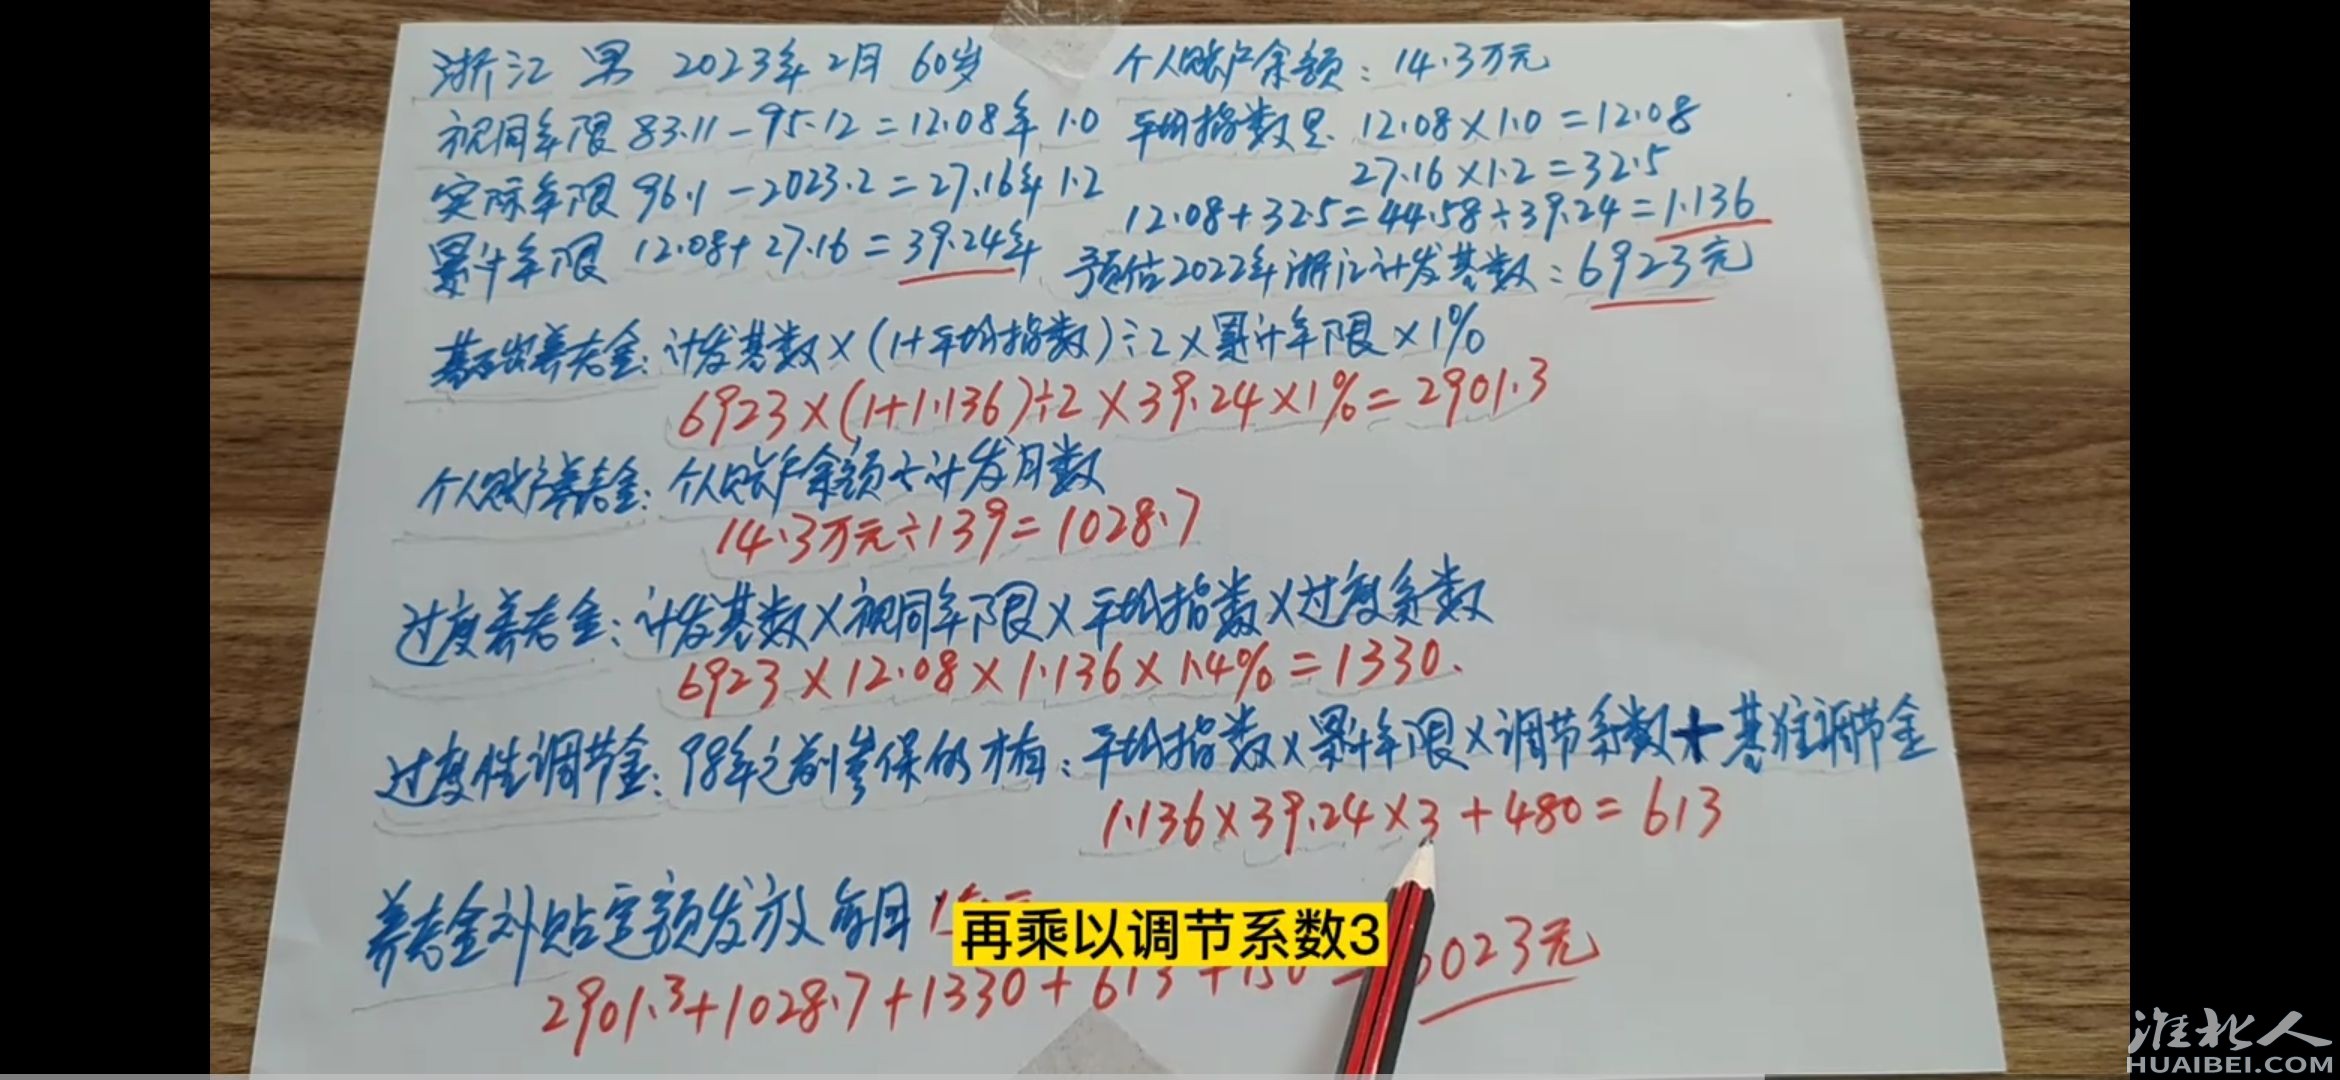 浙江 男 2023年2月 60岁
个人账户余额：14.3万元
视同年限 83.11－95.12＝12.08年 1.0
平均指数是 12.08×1.0＝12.08
27.16×1.2＝32.5
实际年限 96.1－2023.2＝27.16年 1.2
12.08+32.5＝44.58÷39.24＝1.136
累计年限 12.08+27.16＝39.24年
预估2022年浙江计发基数：6923元
基础养老金：计发基数×(1+平均指数)÷2×累计年限×1%
6923×(1+1.136)÷2×39.24×1%＝2901.3
个人账户养老金：个人账户余额÷计发月数
14.3万元÷139＝1028.7
过度养老金：计发基数×视同年限×平均指数×过度系数
6923×12.08×1.136×1.4%＝1330.
过度性调节金：98年之前参保的才有：平均指数×累计年限×调节系数+基准调节金
1.136×39.24×3+480＝613
养老金补贴定额发放 每月
再乘以调节系数3
2901.3+1028.7+1330+613+150 023元
淮北人
HUAIBEI.COM